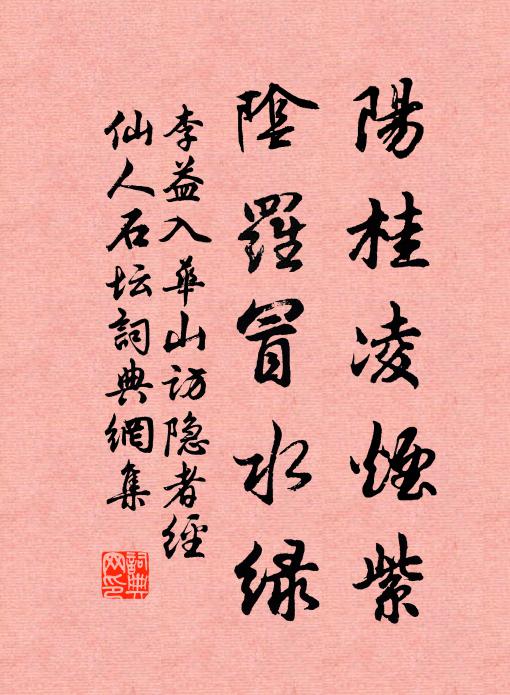 陽桂凌煙紫
陰羅冒水緑
李益入華山访隐者經
仙人石坛詞典網集
詞典網印